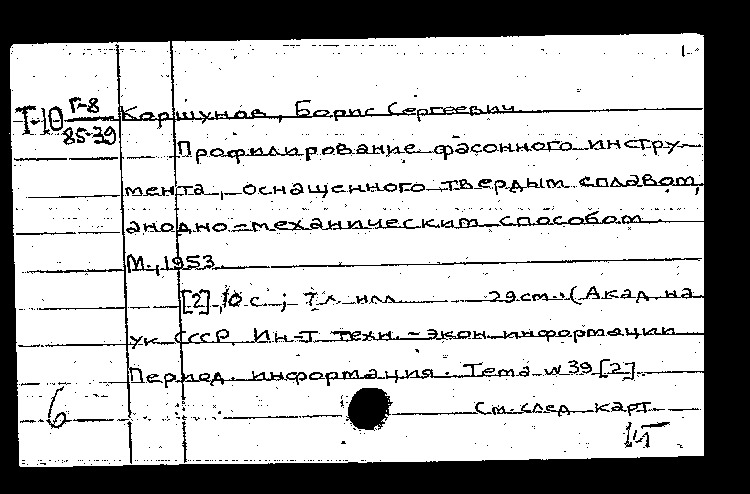 1-
Т-10 Г-8/85-39 Коршунов, Борис Сергеевич
Профилирование фасонного инстру-
мента, оснащенного твердым сплавом,
анодно-механическим способом.
М., 1953.
[2], 10 с.; 7 л. илл. 29 см. (Акад. на
ук СССР. Ин-т техн.-экон. информации
Период. информация. Тема № 39 [2]
См. след. карт.
6